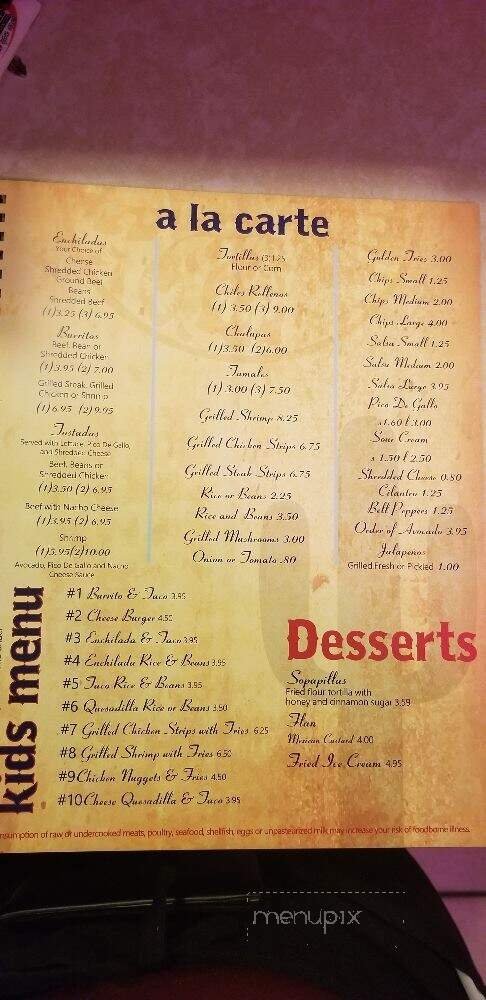 a la carte
Enchiladas
Your Choice of
Cheese
Shredded Chicken
Ground Beef
Beans
Shredded Beef
(1)3.25 (3) 6.95
Burritos
Beef, Bean or
Shredded Chicken
(1)3.95 (2) 7.00
Grilled Steak, Grilled
Chicken or Shrimp
(1)6.95 (2)9.95
Tostadas
Served with Lettuce, Pico De Gallo,
and Shredded Cheese
Beef, Beans or
Shredded Chicken
(1)3.50 (2) 6.95
Beef with Nacho Cheese
(1)3.95 (2) 6.95
Shrimp
(1)5.95(2)10.00
Avocado, Pico De Gallo and Nacho
Cheese Sauce
Tortillas (3)1.25
Flour or Corn
Chiles Rellenos
(1) 3.50 (3) 9.00
Chalupas
(1)3.50 (2)6.00
Tamales
(1) 3.00 (3) 7.50
Grilled Shrimp 8.25
Grilled Chicken Strips 6.75
Grilled Steak Strips 6.75
Rice or Beans 2.25
Rice and Beans 3.50
Grilled Mushrooms 3.00
Onion or Tomato .80
Golden Fries 3.00
Chips Small 1.25
Chips Medium 2.00
Chips Large 4.00
Salsa Small 1.25
Salsa Medium 2.00
Salsa Large 3.95
Pico De Gallo
s1.60 l 3.00
Sour Cream
s 1.50 l 2.50
Shredded Cheese 0.80
Cilantro 1.25
Bell Peppers 1.25
Order of Avocado 3.95
Jalapenos
Grilled Fresh or Pickled 1.00
kids menu
#1 Burrito & Taco 3.95
#2 Cheese Burger 4.50
#3 Enchilada & Taco 3.95
#4 Enchilada Rice & Beans 3.95
#5 Taco Rice & Beans 3.95
#6 Quesadilla Rice or Beans 3.50
#7 Grilled Chicken Strips with Fries 6.25
#8 Grilled Shrimp with Fries 6.50
#9 Chicken Nuggets & Fries 4.50
#10 Cheese Quesadilla & Taco 3.95
Desserts
Sopapillas
Fried flour tortilla with
honey and cinnamon sugar 3.59
Flan
Mexican Custard 4.00
Fried Ice Cream 4.95
nsumption of raw or undercooked meats, poultry, seafood, shellfish, eggs or unpasteurized milk may increase your risk of foodborne illness.
menupix